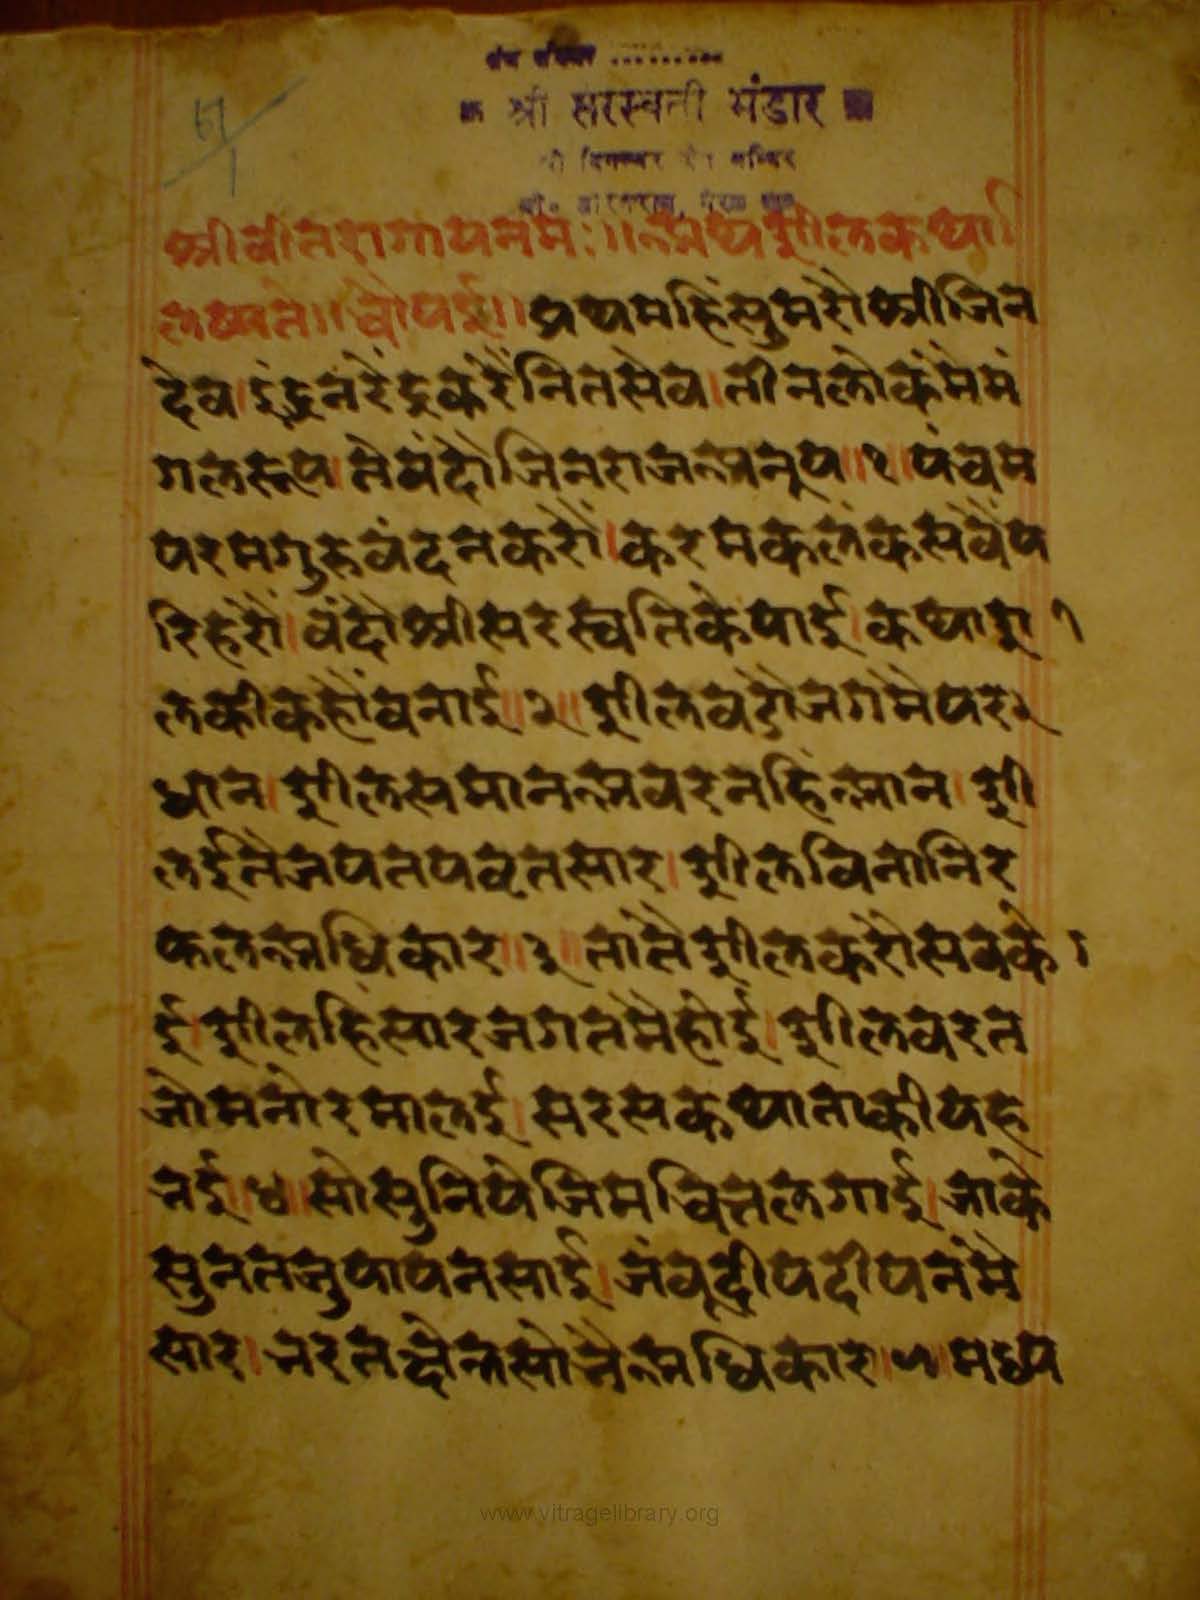 ग्रंथ संख्या .........
श्री सरस्वती भंडार
श्री दिगम्बर जैन मन्दिर
श्रीवीतरागायनमः॥अथशीलकथालि
ख्यते॥चौपई॥प्रथमहिंसुमरोश्रीजिन
देव।इंद्रनरेंद्रकरेंनितसेव।तीनलोकमेंमं
गलरूप।तेवंदोजिनराजअनूप॥१॥पंचम
परमगुरुवंदनकरों।करमकलंकसवैंप
रिहरों।वंदोश्रीसरस्वतिकेपाई।कथाशी
लकीकहोंवनाई॥२॥शीलवडोजगमेपर
धान।शीलसमानअवरनहिंआन।शी
लईतेजपतपवृतसार।शीलविनानिर
फलअधिकार॥३॥तातेशीलकरोसवको
ई।शीलहिंसारजगतमेहोई।शीलवरत
जोमनोरमालई।सरसकथाताकीयह
नई॥४॥सोसुनियेजिमचितलगाई।जाके
सुनतजुपापनसाई।जंवूद्वीपदीपनमें
सार।भरतक्षेत्रसोभैअधिकार॥५॥मध्य
www.vitragelibrary.org